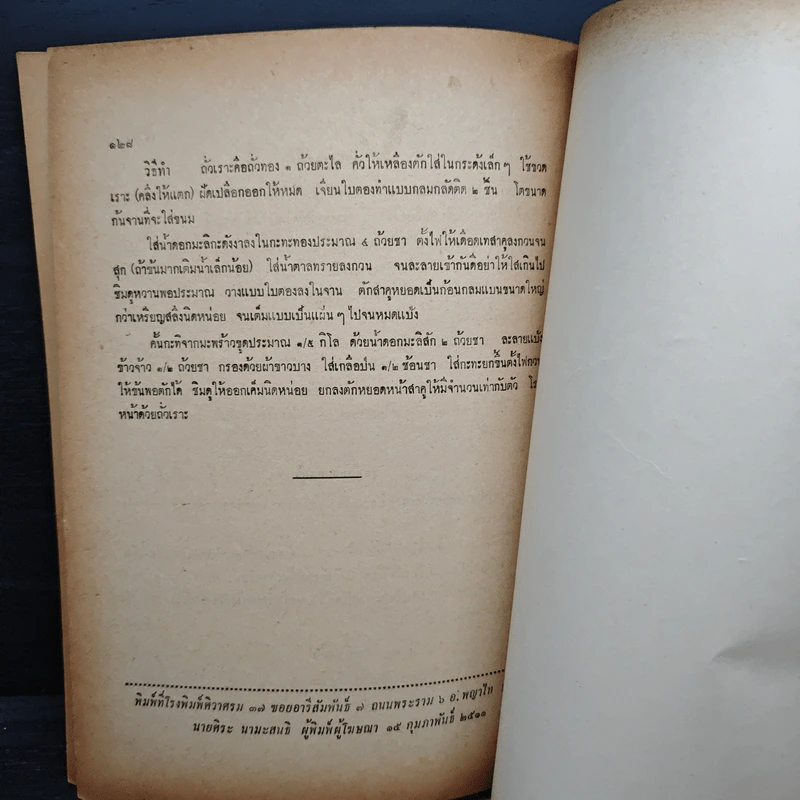 ๑๒๘
วิธีทำ ถั่วเราะคือถั่วทอง ๑ ถ้วยตะไล คั่วให้เหลืองตักใส่ในกระด้งเล็กๆ ใช้ขวด
เราะ (คลึงให้แตก) ฝัดเปลือกออกให้หมด เจียนใบตองทำแบบกลมกลัดติด ๒ ชั้น โตขนาด
ก้นจานที่จะใส่ขนม
ใส่น้ำดอกมะลิกะดังงาลงในกะทะทองประมาณ ๔ ถ้วยชา ตั้งไฟให้เดือดเทสาคูลงกวนจน
สุก (ถ้าข้นมากเติมน้ำเล็กน้อย) ใส่น้ำตาลทรายลงกวน จนละลายเข้ากันดีอย่าให้ใสเกินไป
ชิมดูหวานพอประมาณ วางแบบใบตองลงในจาน ตักสาคูหยอดเป็นก้อนกลมแบนขนาดใหญ่
กว่าเหรียญสลึงนิดหน่อย จนเต็มแบบเป็นแผ่นๆ ไปจนหมดแป้ง
คั้นกะทิจากมะพร้าวขูดประมาณ ๑/๕ กิโล ด้วยน้ำดอกมะลิสัก ๒ ถ้วยชา ละลายแป้ง
ข้าวจ้าว ๑/๒ ถ้วยชา กรองด้วยผ้าขาวบาง ใส่เกลือป่น ๑/๒ ช้อนชา ใส่กะทะยกขึ้นตั้งไฟ
ให้ข้นพอตักได้ ชิมดูให้ออกเค็มนิดหน่อย ยกลงตักหยอดหน้าสาคูให้มีจำนวนเท่ากับตัว
หน้าด้วยถั่วเราะ
พิมพ์ที่โรงพิมพ์ศิวาศรม ๓๗ ซอยอารีสัมพันธ์ ๗ ถนนพระราม ๖ อ. พญาไท
นายศิระ นามะสนธิ ผู้พิมพ์ผู้โฆษณา ๑๕ กุมภาพันธ์ ๒๕๑๑